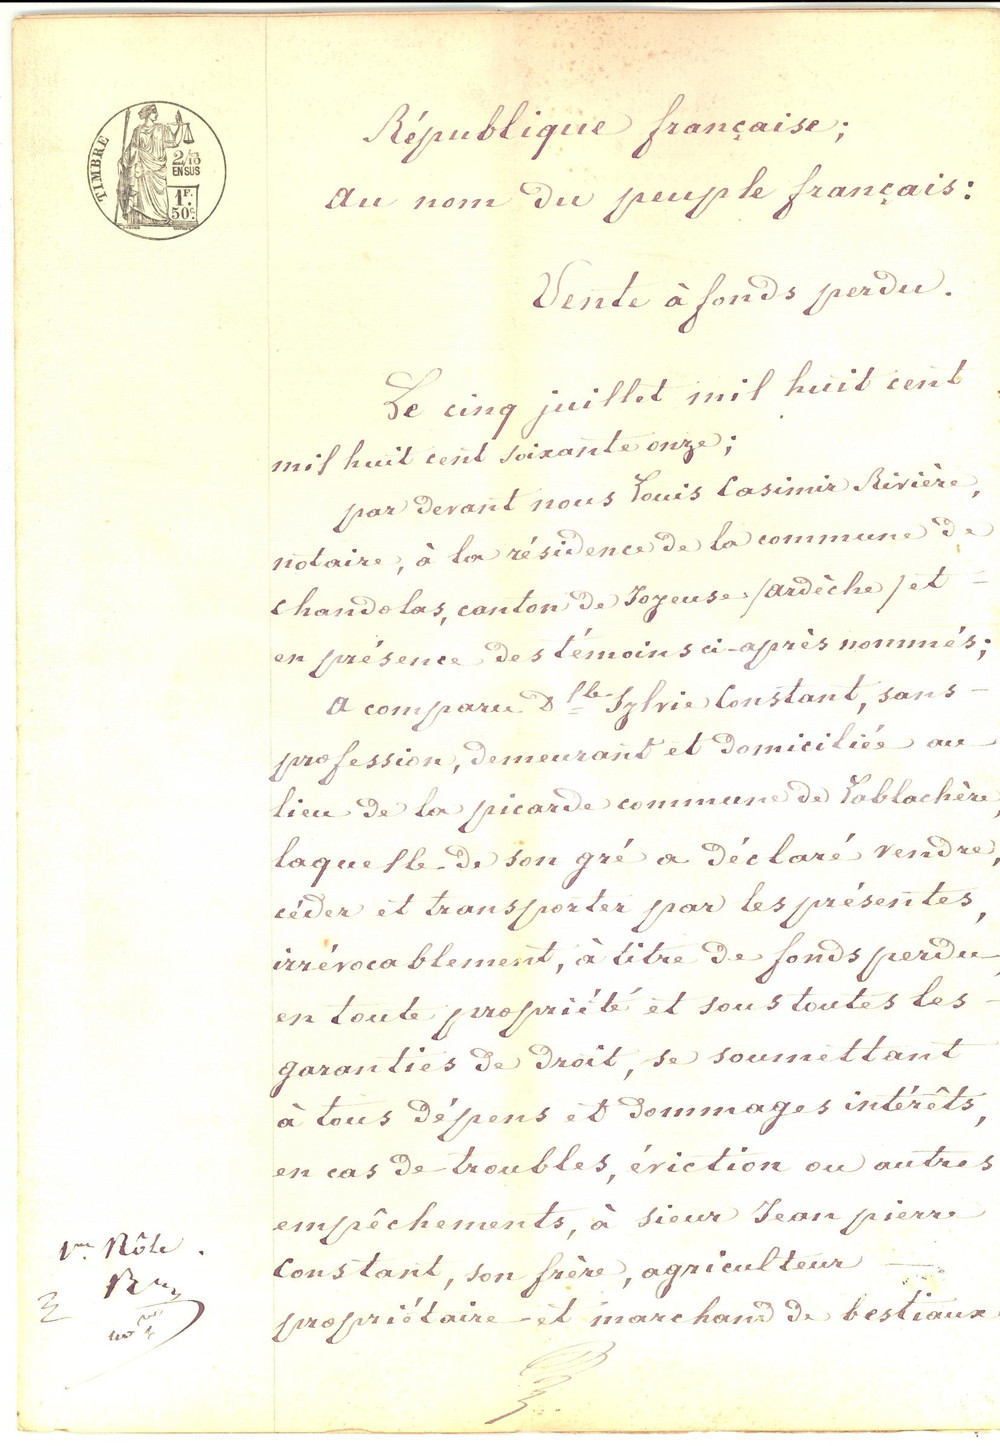 TIMBRE
2/10
EN SUS
1F.
50c.
République française;
au nom du peuple français:
Vente à fonds perdu.
Le cinq juillet mil huit cent
mil huit cent soixante onze;
par devant nous Louis Casimir Rivière,
notaire, à la résidence de la commune de
chandolas, canton de Joyeuse /ardèche/ et =
en présence des témoins ci-après nommés;
A comparu Dlle Sylvie Constant, sans -
profession, demeurant et domiciliée au
lieu de la picarde commune de Lablachère,
laquelle de son gré a déclaré vendre,
céder et transporter par les présentes,
irrévocablement, à titre de fonds perdu,
en toute propriété et sous toutes les -
garanties de droit, se soumettant
à tous dépens et dommages intérêts,
en cas de troubles, éviction ou autres
empêchements, à sieur Jean pierre
Constant, son frère, agriculteur —
propriétaire et marchand de bestiaux
1er Rôle.